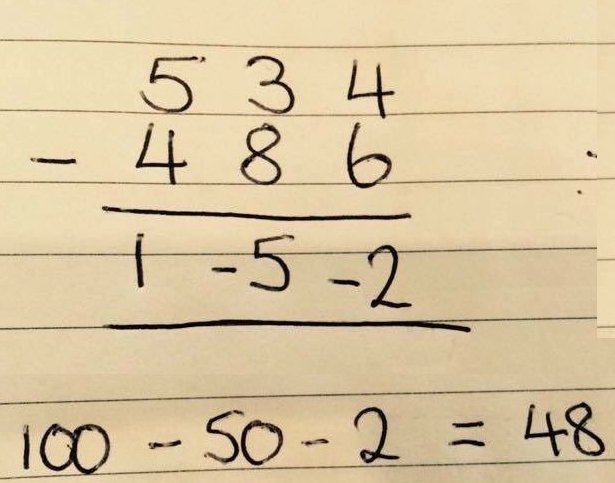 5 3 4
- 4 8 6
1 -5 -2
100 - 50 - 2 = 48